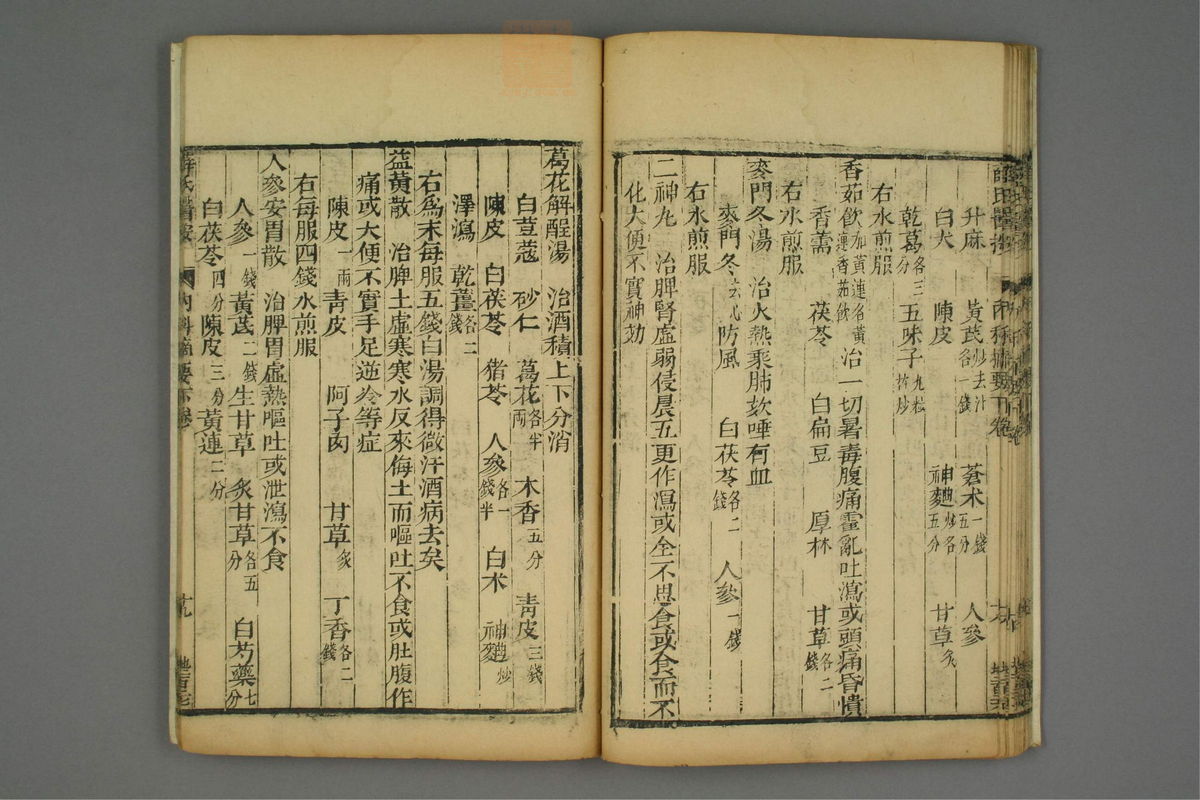 升麻 黃芪炒去汁各一錢 蒼术一錢五分 人參
白术 陳皮 神麯炒各五分 甘草炙
乾葛各三分 五味子九粒杵炒
右水煎服
香茹飲加黃連名黃連香茹飲 治一切暑毒腹痛霍亂吐瀉或頭痛昏憒
香薷 茯苓 白扁豆 厚朴 甘草各二錢
右水煎服
麥門冬湯 治火熱乘肺欬唾有血
麥門冬去心 防風 白茯苓各二錢 人參一錢
右水煎服
二神丸 治脾腎虛弱侵晨五更作瀉或全不思食或食而不
化大便不實神効
葛花解酲湯 治酒積上下分消
白荳蔻 砂仁 葛花各半兩 木香五分 青皮三錢
陳皮 白茯苓 猪苓 人參各一錢半 白术 神麯炒
澤瀉 乾薑各二錢
右為末每服五錢白湯調得微汗酒病去矣
益黃散 治脾土虛寒寒水反來侮土而嘔吐不食或肚腹作
痛或大便不實手足逆冷等症
陳皮一兩 青皮 阿子肉 甘草炙 丁香各二錢
右每服四錢水煎服
人參安胃散 治脾胃虛熱嘔吐或泄瀉不食
人參一錢 黃芪二錢 生甘草 炙甘草各五分 白芍藥七分
白茯苓四分 陳皮三分 黃連二分
薛氏醫按 內科摘要下卷 十九